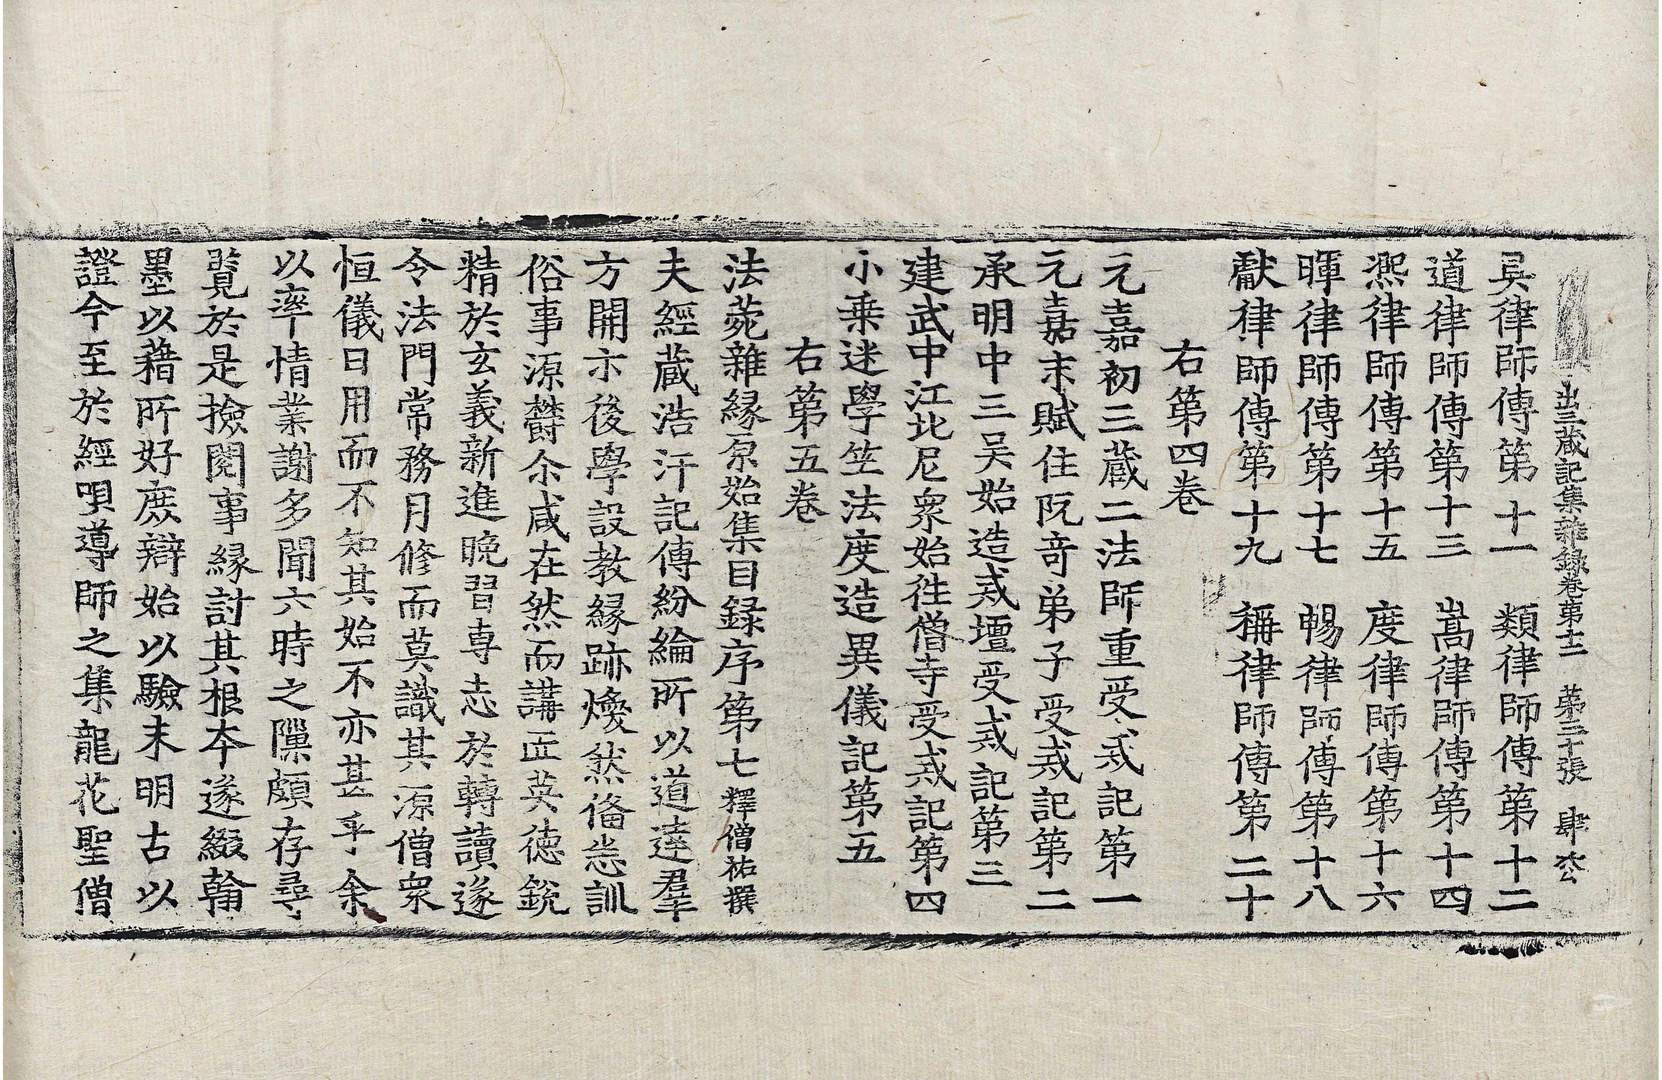 出三蔵記集雜録卷第十二 第三十張 肆
吴律師傳第十一 類律師傳第十二
道律師傳第十三 嵩律師傳第十四
熈律師傳第十五 度律師傳第十六
暉律師傳第十七 暢律師傳第十八
獻律師傳第十九 稱律師傳第二十
右第四卷
元嘉初三藏二法師重受戒記第一
元嘉末賦住阮竒弟子受戒記第二
承明中三吴始造戒壇受戒記第三
建武中江北尼衆始徃僧寺受戒記第四
小乗迷學竺法度造異儀記第五
右第五卷
法菀雜縁原始集目録序第七釋僧祐撰
夫經蔵浩汗記傳紛綸所以道達羣
方開示後學設教縁跡煥然俻悉訓
俗事源欝尒咸在然而講匠英德銳
精於玄義新進晚習専志於轉讀遂
令法門常務月修而莫識其源僧衆
恒儀日用而不知其始不亦甚乎余
以率情業謝多聞六時之隟頗存尋
覽於是撿閱事縁討其根夲遂綴翰
墨以藉所好庻辯始以驗末明古以
證今至於經唄導師之集龍花聖僧